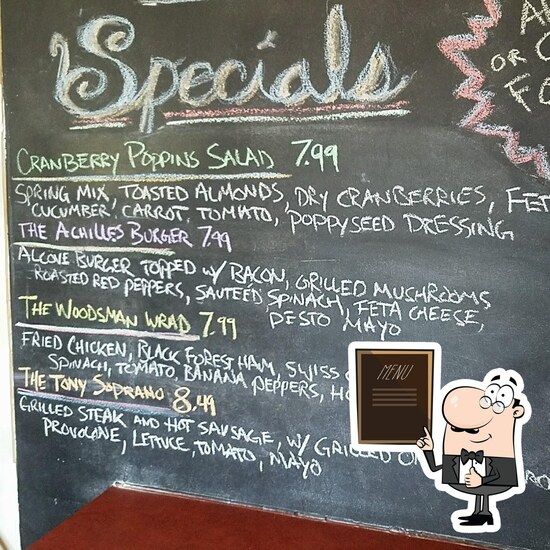 Specials
CRANBERRY POPPINS SALAD 7.99
SPRING MIX, TOASTED ALMONDS, DRY CRANBERRIES,
CUCUMBER, CARROT, TOMATO, POPPYSEED DRESSING
THE ACHILLES BURGER 7.99
ALCOVE BURGER TOPPED W/ BACON, GRILLED MUSHROOMS
ROASTED RED PEPPERS, SAUTEÉD SPINACH, FETA CHEESE,
PESTO MAYO
THE WOODSMAN WRAP 7.99
FRIED CHICKEN, BLACK FOREST HAM, SWISS
SPINACH, TOMATO, BANANA PEPPERS,
THE TONY SOPRANO 8.49
GRILLED STEAK AND HOT SAUSAGE, W/ GRILLED
PROVOLONE, LETTUCE, TOMATO, MAYO
OR
MENU